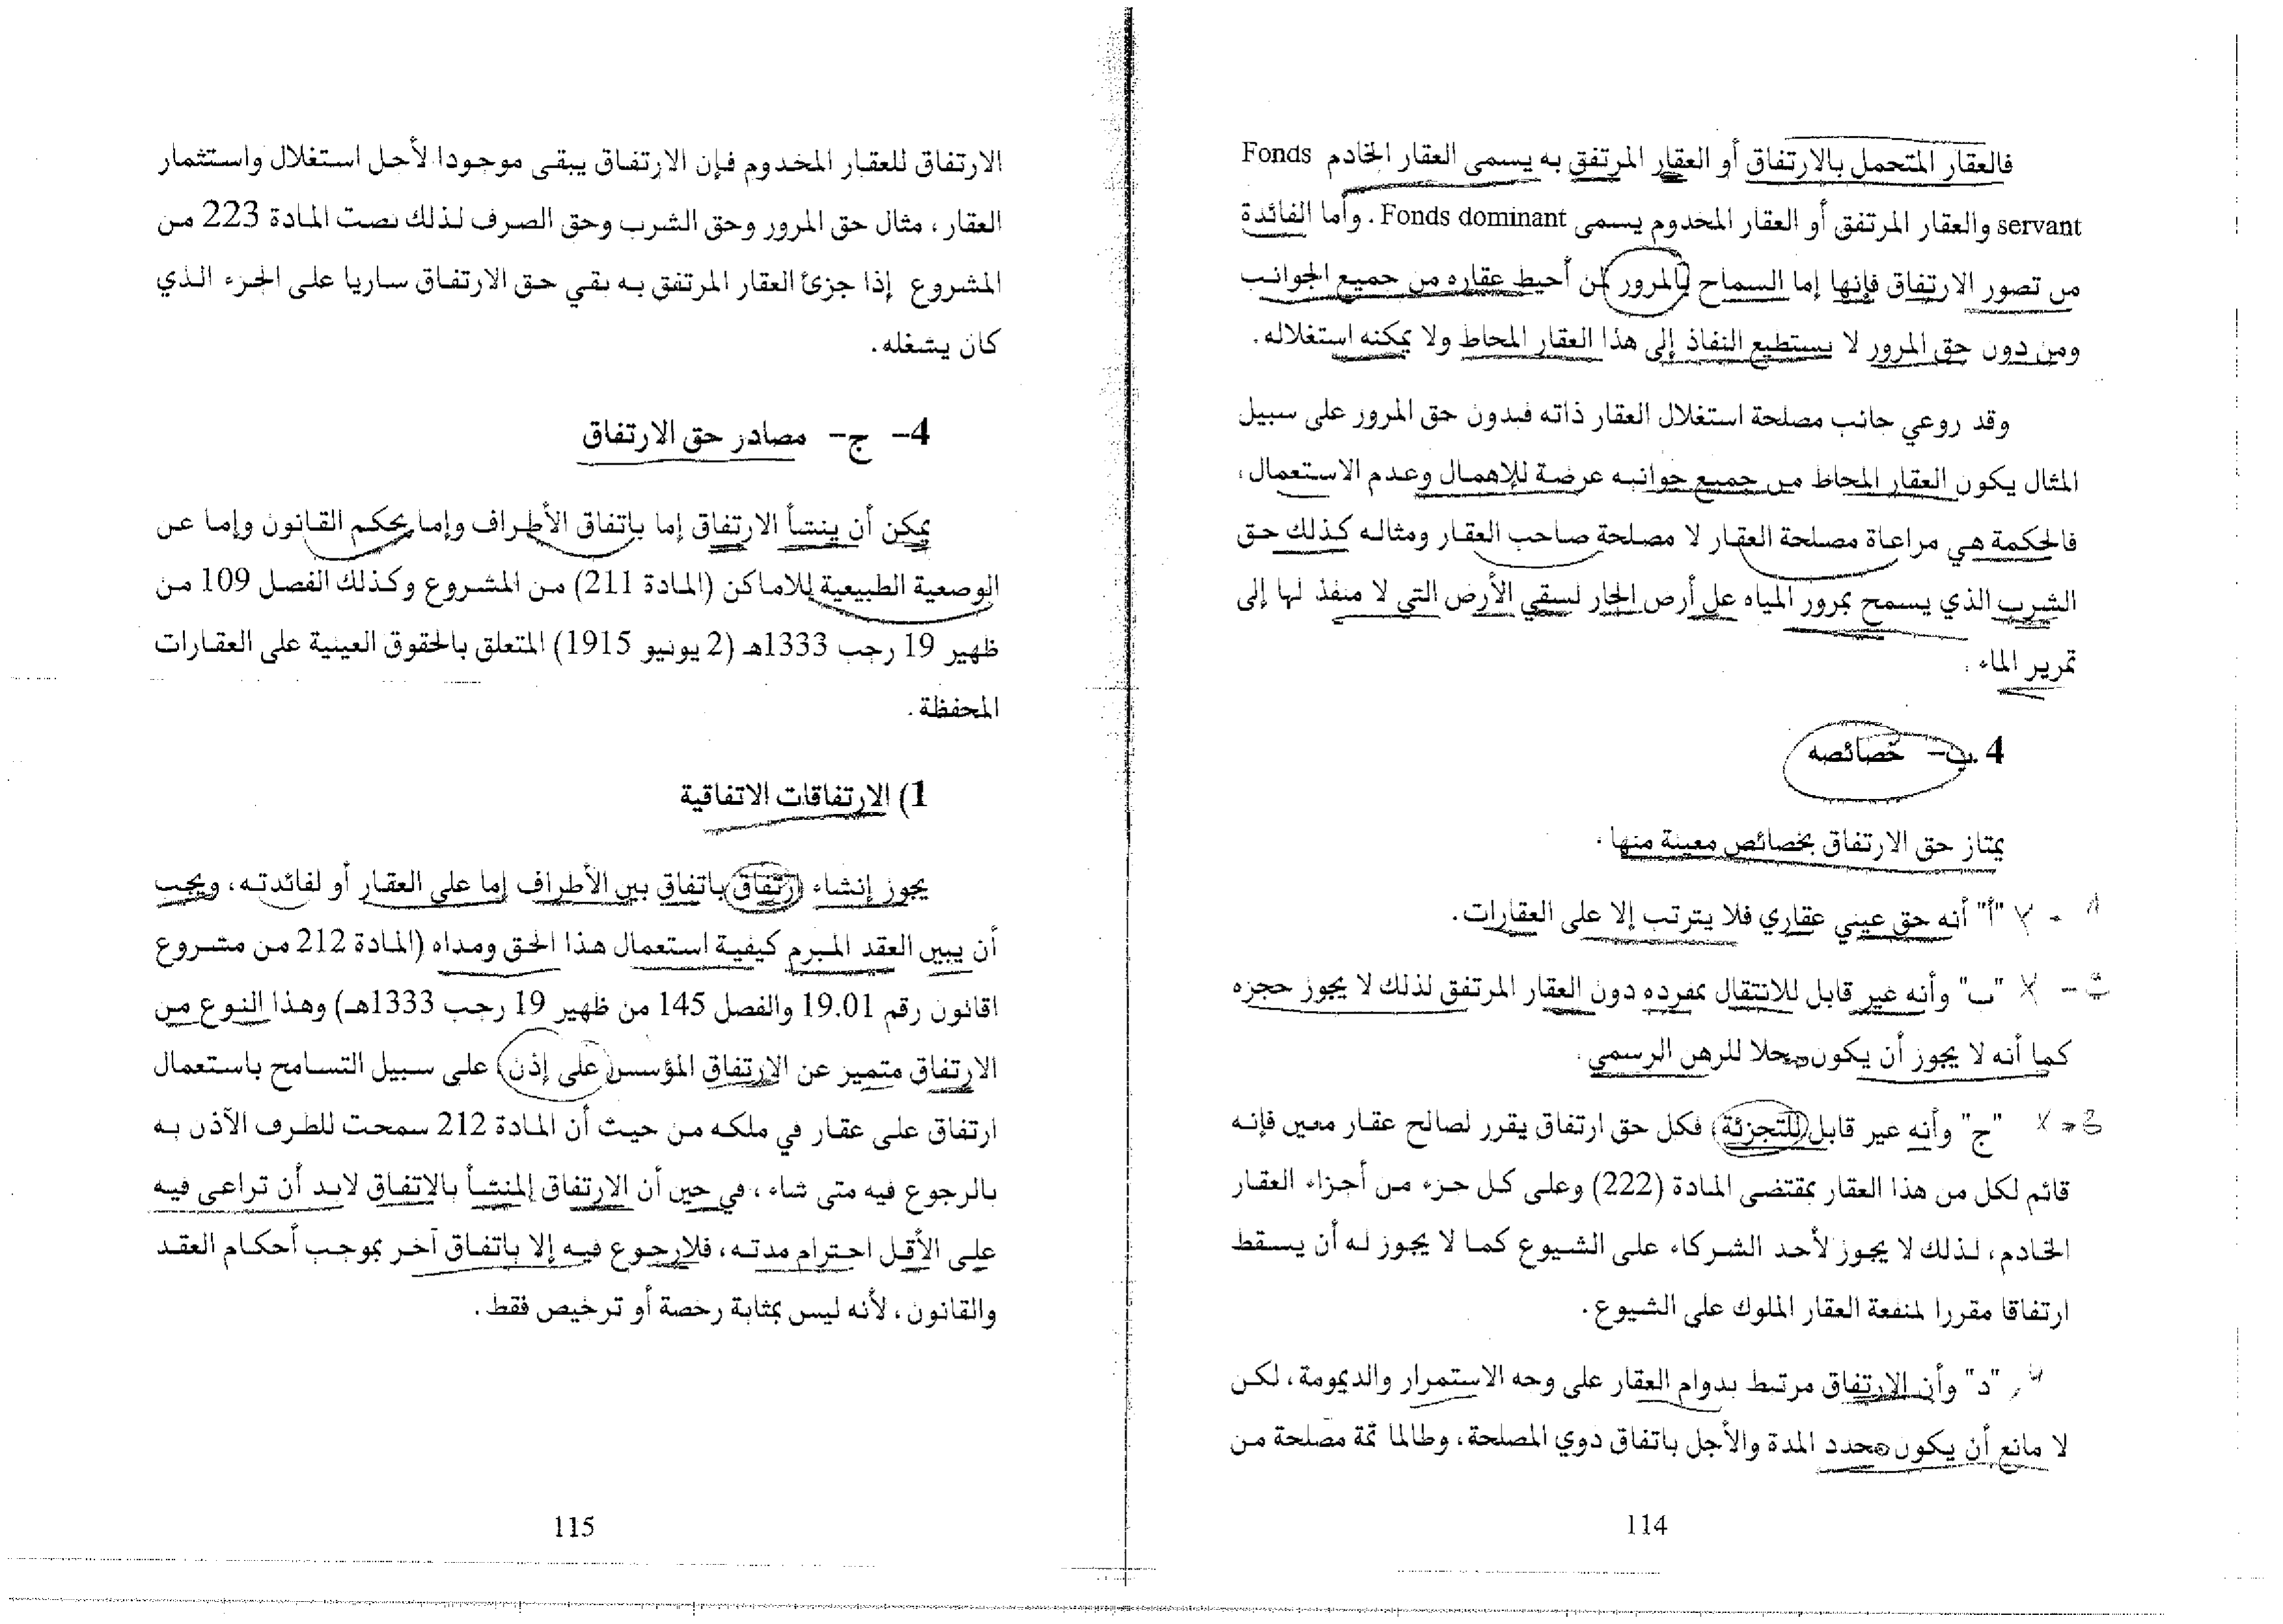 فالعقار المتحمل بالارتفاق أو العقار المرتفق به يسمى العقار الخادم Fonds
servant والعقار المرتفق أو العقار المخدوم يسمى Fonds dominant. وأما الفائدة
من تصور الارتفاق فإنها إما السماح بالمرور لمن أحيط عقاره من جميع الجوانب
ومن دون حق المرور لا يستطيع النفاذ إلى هذا العقار المحاط ولا يمكنه استغلاله.
وقد روعي جانب مصلحة استغلال العقار ذاته فبدون حق المرور على سبيل
المثال يكون العقار المحاط من جميع جوانبه عرضة للإهمال وعدم الاستعمال،
فالحكمة هي مراعاة مصلحة العقار لا مصلحة صاحب العقار ومثاله كذلك حق
الشرب الذي يسمح بمرور المياه عل أرض الجار لسقي الأرض التي لا منفذ لها إلى
تمرير الماء.
4 .ب- خصائصه
يمتاز حق الارتفاق بخصائص معينة منها.
"أ" أنه حق عيني عقاري فلا يترتب إلا على العقارات.
"ب" وأنه غير قابل للانتقال بمفرده دون العقار المرتفق لذلك لا يجوز حجزه
كما أنه لا يجوز أن يكون محلا للرهن الرسمي.
"ج" وأنه غير قابل للتجزئة، فكل حق ارتفاق يقرر لصالح عقار معين فإنه
قائم لكل من هذا العقار بمقتضى المادة (222) وعلى كل جزء من أجزاء العقار
الخادم، لذلك لا يجوز لأحد الشركاء على الشيوع كما لا يجوز له أن يسقط
ارتفاقا مقررا لمنفعة العقار الملوك على الشيوع.
"د" وأن الارتفاق مرتبط بدوام العقار على وجه الاستمرار والديمومة، لكن
لا مانع أن يكون محدد المدة والأجل باتفاق ذوي المصلحة، وطالما ثمة مصلحة من
114
الارتفاق للعقار المخدوم فإن الارتفاق يبقى موجودا لأجل استغلال واستثمار
العقار، مثال حق المرور وحق الشرب وحق الصرف لذلك نصت المادة 223 من
المشروع إذا جزئ العقار المرتفق به بقي حق الارتفاق ساريا على الجزء الذي
كان يشغله.
4- ج- مصادر حق الارتفاق
يمكن أن ينشأ الارتفاق إما باتفاق الأطراف وإما بحكم القانون وإما عن
الوضعية الطبيعية للاماكن (المادة 211) من المشروع وكذلك الفصل 109 من
ظهير 19 رجب 1333هـ (2 يونيو 1915) المتعلق بالحقوق العينية على العقارات
المحفظة.
1) الارتفاقات الاتفاقية
يجوز إنشاء ارتفاق باتفاق بين الأطراف إما على العقار أو لفائدته، ويجب
أن يبين العقد المبرم كيفية استعمال هذا الحق ومداه (المادة 212 من مشروع
اقانون رقم 19.01 والفصل 145 من ظهير 19 رجب 1333هـ) وهذا النوع من
الارتفاق متميز عن الارتفاق المؤسس على إذن على سبيل التسامح باستعمال
ارتفاق على عقار في ملكه من حيث أن المادة 212 سمحت للطرف الآذن به
بالرجوع فيه متى شاء، في حين أن الارتفاق المنشأ بالاتفاق لابد أن تراعى فيه
على الأقل احترام مدته، فلارجوع فيه إلا باتفاق آخر بموجب أحكام العقد
والقانون، لأنه ليس بمثابة رخصة أو ترخيص فقط.
115